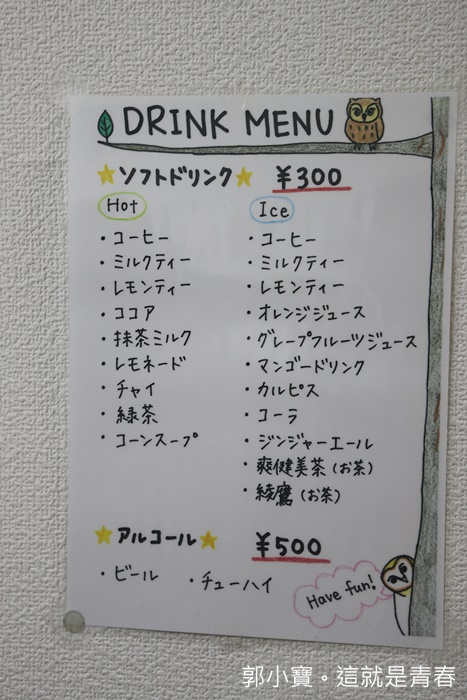 DRINK MENU
★ソフトドリンク★ ¥300
Hot
・コーヒー
・ミルクティー
・レモンティー
・ココア
・抹茶ミルク
・レモネード
・チャイ
・緑茶
・コーンスープ
Ice
・コーヒー
・ミルクティー
・レモンティー
・オレンジジュース
・グレープフルーツジュース
・マンゴードリンク
・カルピス
・コーラ
・ジンジャーエール
・爽健美茶(お茶)
・綾鷹(お茶)
★アルコール★ ¥500
・ビール ・チューハイ
Have fun!
郭小寶。這就是青春